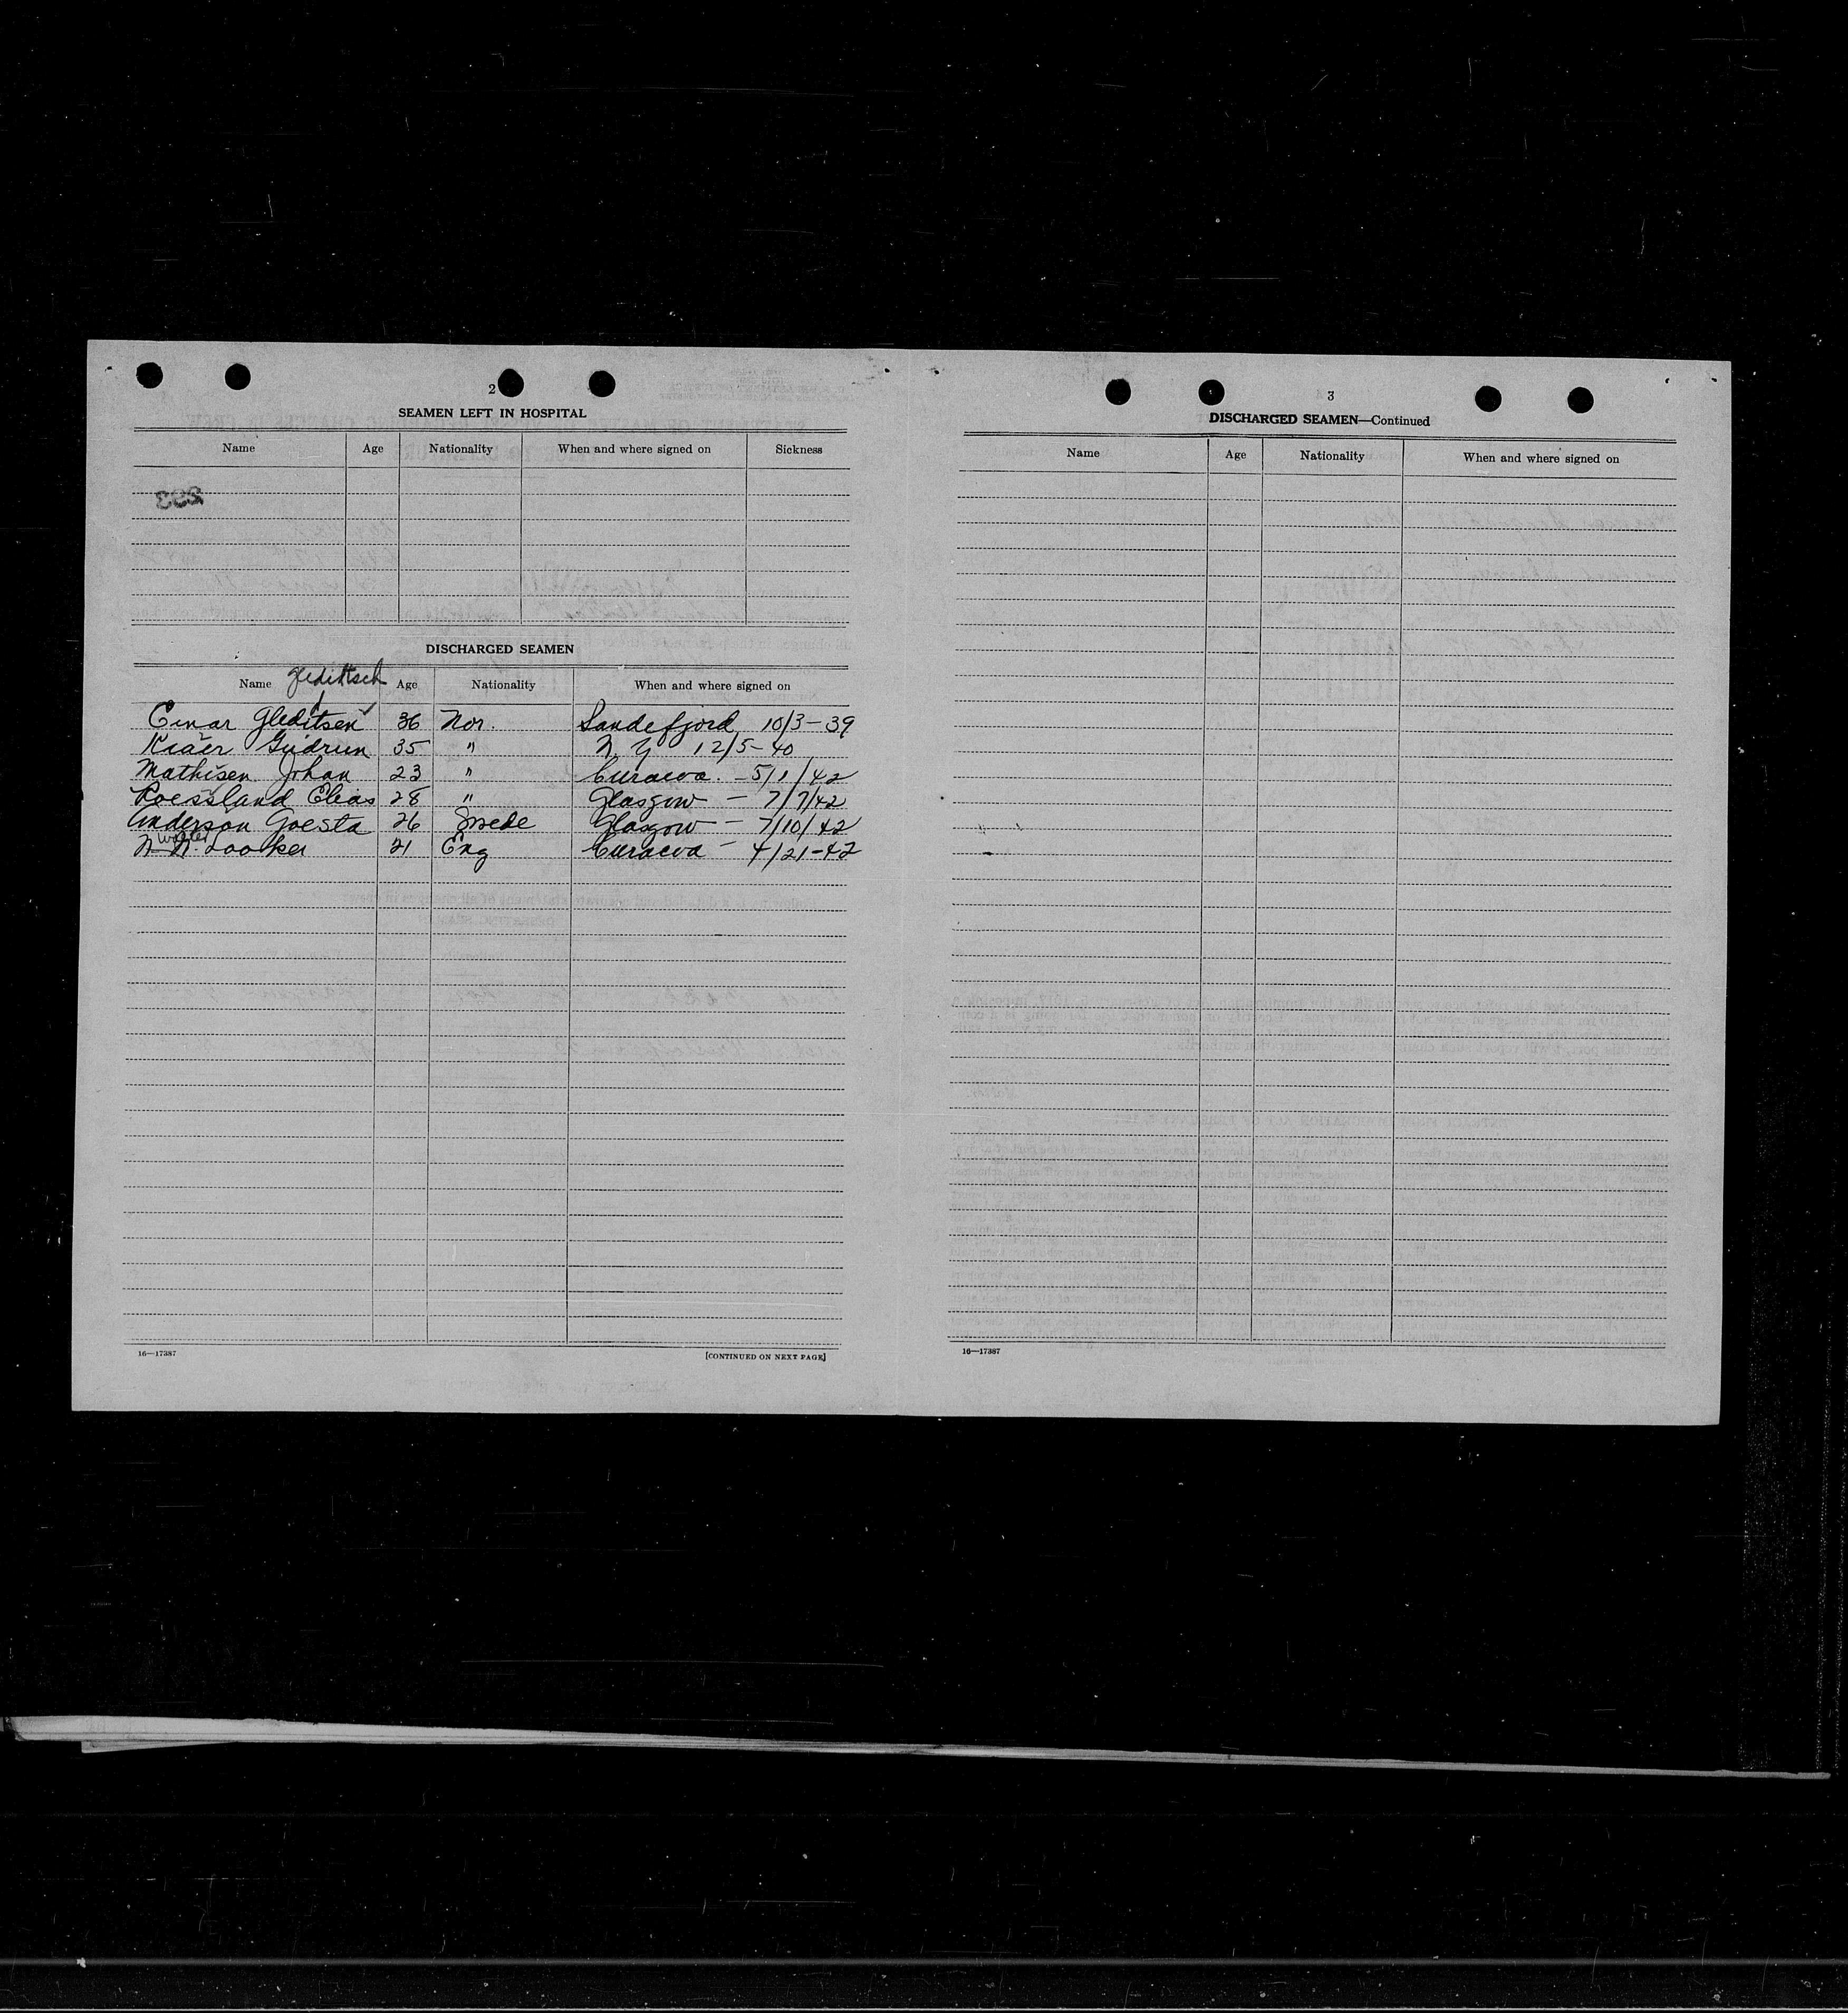 2
SEAMEN LEFT IN HOSPITAL
Name Age Nationality When and where signed on Sickness
233
DISCHARGED SEAMEN
Gleditsch
Name Age Nationality When and where signed on
Einar Gleditsen 36 Nor. Sandefjord 10/3-39
Kiaer Gudrun 35 " N.Y 12/5-40
Mathisen Johan 23 " Curacoa. -5/1/42
Roessland Elias 28 " Glasgow - 7/7/42
Anderson Goesta 26 Swede Glasgow - 7/10/42
N. Looker 21 Eng Curacoa - 4/21-42
16—17387
[CONTINUED ON NEXT PAGE]
3
DISCHARGED SEAMEN—Continued
Name Age Nationality When and where signed on
16—17387